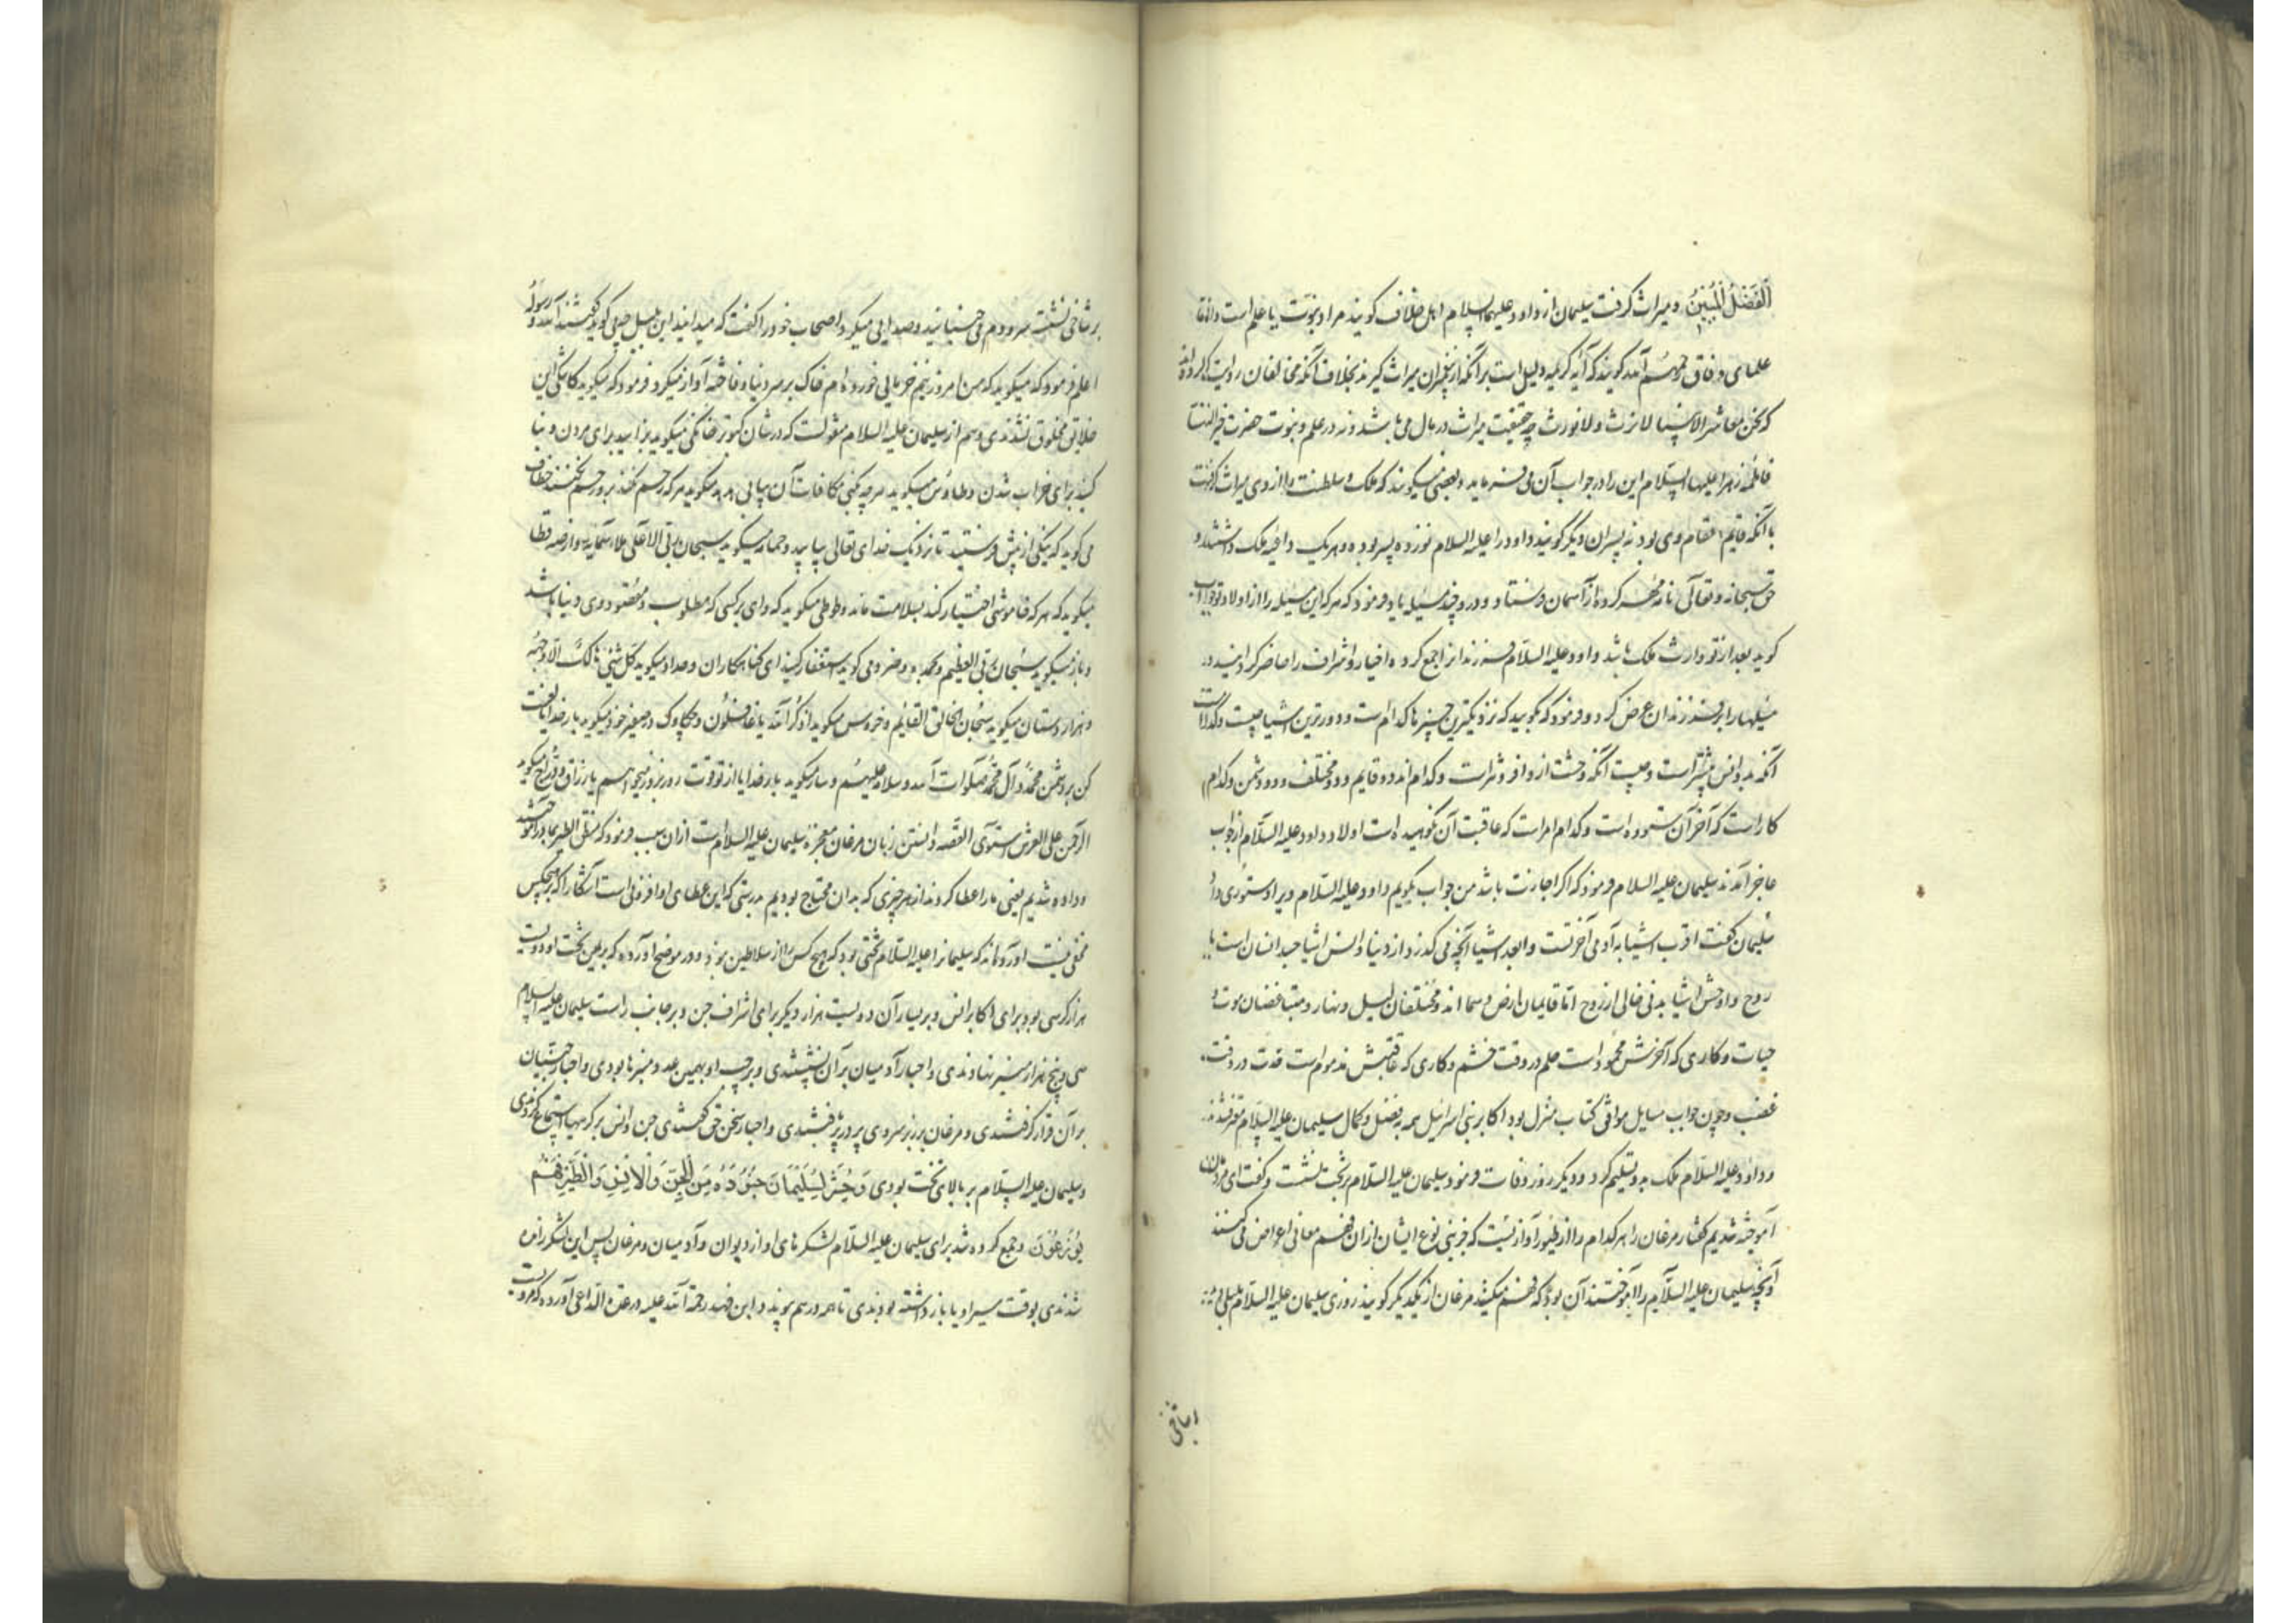 الْفَضْلُ الْمُبِينُ و میراث گرفت سلیمان از داود علیهما السلام اهل خلاف گویند مراد نبوت یا علم است و اتفاقا
علمای وفاق رحمهم الله گویند که آیه کریمه دلیل است بر آنکه از پیغمبران میراث گیرند بخلاف آنکه مخالفان روایت کرده اند
که نحن معاشر الانبیا لا نرث و لا نورث چه حقیقت میراث در مال می باشد و نه در علم و نبوت حضرت خیر النسا
فاطمه زهرا علیها السلام این را در جواب آن می فرماید و بعضی میگویند که ملک و سلطنت را از وی میراث گرفت
با آنکه قایم مقام وی بود نه پسران دیگر گویند داود را علیه السلام نوزده پسر بوده و هر یک داعیه ملک داشتند و
حق سبحانه و تعالی نامه مهر کرده از آسمان فرستاد و درو چند مسئله یاد فرمود که هر که این مسئله را از اولاد تو جواب
گوید بعد از تو وارث ملک باشد داود علیه السلام فرزندانرا جمع کرده اخیار و اشراف را حاضر گردانید و
مسئلها را بر فرزندان عرض کرد و فرمود که بگویید که نزدیکترین چیزها کدام است و دورترین اشیا چیست و کدام است
آنکه بدو انس بیشتر است و چیست آنکه وحشت ازو افزونتر است و کدام اند دو قایم و دو مختلف و دو دشمن و کدام
کار است که آخر آن ستوده است و کدام امر است که عاقبت آن نکوهیده است اولاد داود علیه السلام از جواب
عاجز آمدند سلیمان علیه السلام فرمود که اگر اجازت باشد من جواب بگویم داود علیه السلام ویرا دستوری داد
سلیمان گفت اقرب اشیا به آدمی آخرتست و ابعد اشیا آنچه می گذرد از دنیا و انس اشیا جسد انسان است با
روح و اوحش اشیا بدنی خالی از روح اما قایمان ارض و سما اند و مختلفان لیل و نهار و متباغضان موت و
حیات و کاری که آخرش محمود است حلم در وقت خشم و کاری که عاقبتش مذموم است حدت در وقت
غضب و چون جواب مسایل موافق کتاب منزل بود اکابر بنی اسرائیل همه بفضل و کمال سلیمان علیه السلام مقر شدند
و داود علیه السلام ملک بدو تسلیم کرد و دیگر روز وفات فرمود سلیمان علیه السلام بر تخت نشست و گفت ای مردمان
آموخته شدیم گفتار مرغان را هر کدام را از طیور آوازیست که جز بنی نوع ایشان از ان فهم معانی اغراض می کنند
و آنچه سلیمان علیه السلام را آموختند آن بود که فهم میکند مرغان از یکدیگر گویند روزی سلیمان علیه السلام بلبلی دید
بر شاخی نشسته سر و دم می جنبانید و صدایی میکرد اصحاب خود را گفت که میدانید این بلبل چه می گوید گفتند الله و رسوله
اعلم فرمود که میگوید که من امروز نیم خرمایی خورده ام خاک بر سر دنیا و فاخته آواز میکرد و فرمود که میگوید کاشکی این
خلایق مخلوق نشدندی و هم از سلیمان علیه السلام منقولست که در شان کبوتر خانگی میگوید بزایید برای مردن و بنا
کنید برای خراب شدن و طاوس میگوید هر چه کنی مکافات آن بیابی هدهد میگوید هر که رحم نکند برو رحم نکنند خطاف
می گوید که نیکی از پیش فرستید تا نزدیک خدای تعالی بیابید و حمامه میگوید سبحان ربی الاعلی ملأ سمائه و ارضه قطا
میگوید که هر که خاموشی اختیار کند بسلامت ماند و طوطی میگوید که وای بر کسی که مطلوب و مقصود وی دنیا باشد
و باز میگوید سبحان ربی العظیم و بحمده و صرد می گوید استغفار کنید ای گناهکاران و حدا میگوید کل شیء هالک الا وجهه
و هزار دستان میگوید سبحان الخالق القایم و خروس میگوید اذکروا الله یا غافلون و چکاوک در صفیر خود میگوید بار خدایا لعنت
کن بر دشمن محمد و آل محمد صلوات الله و سلامه علیهم و سار میگوید بار خدایا از تو قوت روز بروز میخواهم یا رزاق و دراج میگوید
الرحمن علی العرش استوی القصه دانستن زبان مرغان معجزه سلیمان علیه السلام است از ان سبب فرمود که منطق الطیر بما در آموختند
و داده شدیم یعنی ما را عطا کردند از هر چیزی که بدان محتاج بودیم بدرستی که این عطای او افزونی است آشکارا که بر هیچکس
مخفی نیست آورده اند که سلیمانرا علیه السلام تختی بود که هیچ کس را از سلاطین نبود و در موضح آورده که بر یمین تخت او دویست
هزار کرسی بود برای اکابر انس و بر یسار آن دویست هزار دیگر برای اشراف جن و بر جانب راست سلیمان علیه السلام
سی و پنج هزار منبر نهادندی و احبار آدمیان بر آن نشستندی و بر چپ او بهمین عدد منبرها بودی و احبار جنیان
بر آن قرار گرفتندی و مرغان بر زبر سر وی پر در پر بافتندی و احبار سخن حق گفتندی جن و انس بر کرسیها استماع کردندی
و سلیمان علیه السلام بر بالای تخت بودی وَحُشِرَ لِسُلَيْمَانَ جُنُودُهُ مِنَ الْجِنِّ وَالْإِنْسِ وَالطَّيْرِ فَهُمْ
يُوزَعُونَ و جمع کرده شد برای سلیمان علیه السلام لشکرهای او از دیوان و آدمیان و مرغان پس این لشکر رانده
شدندی بوقت سیر او یا باز داشته بودندی تا همه در هم پیوندند و ابن فهد رحمة الله علیه در عدة الداعی آورده که مرویست
بر شاخی